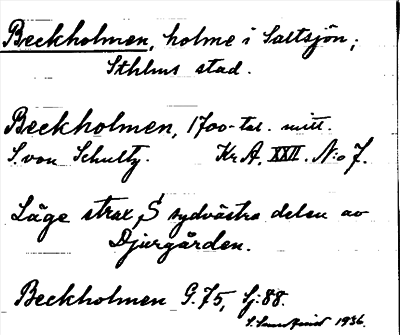 Beckholmen, holme i Saltsjön;
Sthlms stad.
Beckholmen, 1700-tal. mitt.
S. von Schultz. Kr A, XXII. N:o 7.
Läge strax S sydvästra delen av
Djurgården.
Beckholmen G. 75, Sj: 88.
1936.